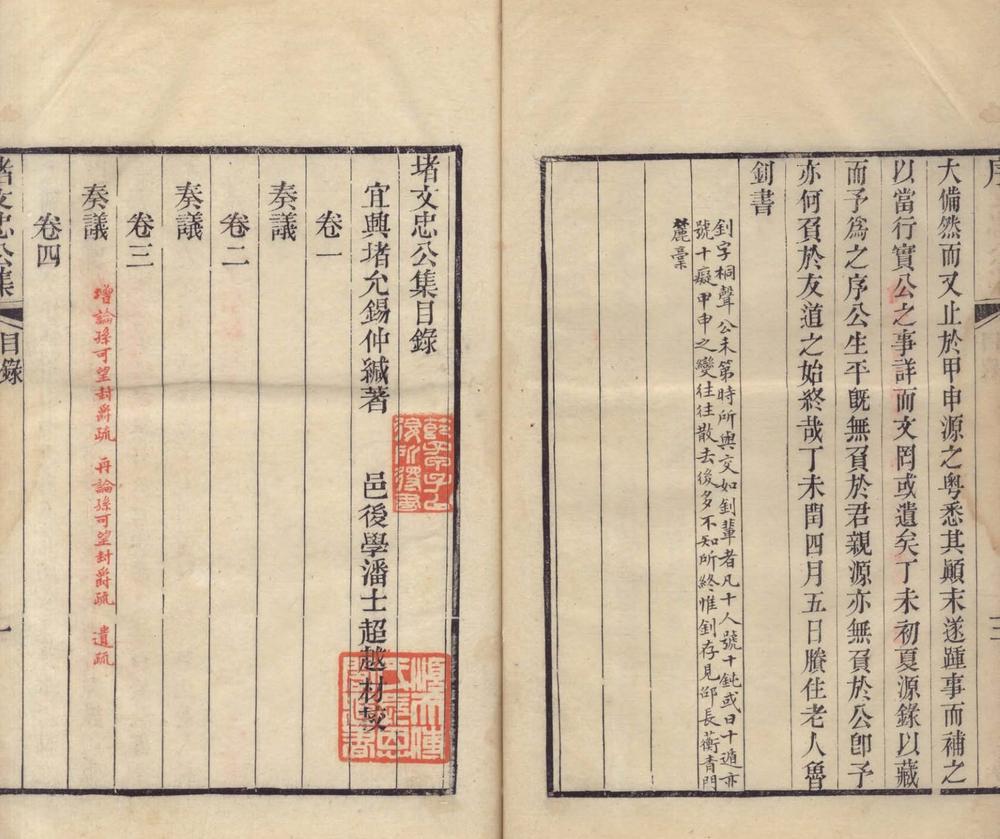 大備然而又止於甲申源之粵悉其顛末遂踵事而補之
以當行實公之事詳而文罔或遺矣丁未初夏源錄以藏
而予爲之序公生平旣無負於君親源亦無負於公卽予
亦何負於友道之始終哉丁未閏四月五日賸住老人魯
釗書
釗字桐聲公未第時所與交如釗輩者凡十人號十鈍或曰十遁亦
號十癡甲申之變往往散去後多不知所終惟釗存見邵長蘅青門
麓稾
堵文忠公集目錄
宜興堵允錫仲緘著 邑後學潘士超越材較
卷一
奏議
卷二
奏議
卷三
奏議
增論孫可望封爵疏 再論孫可望封爵疏 遺疏
卷四
堵文忠公集 目錄 一